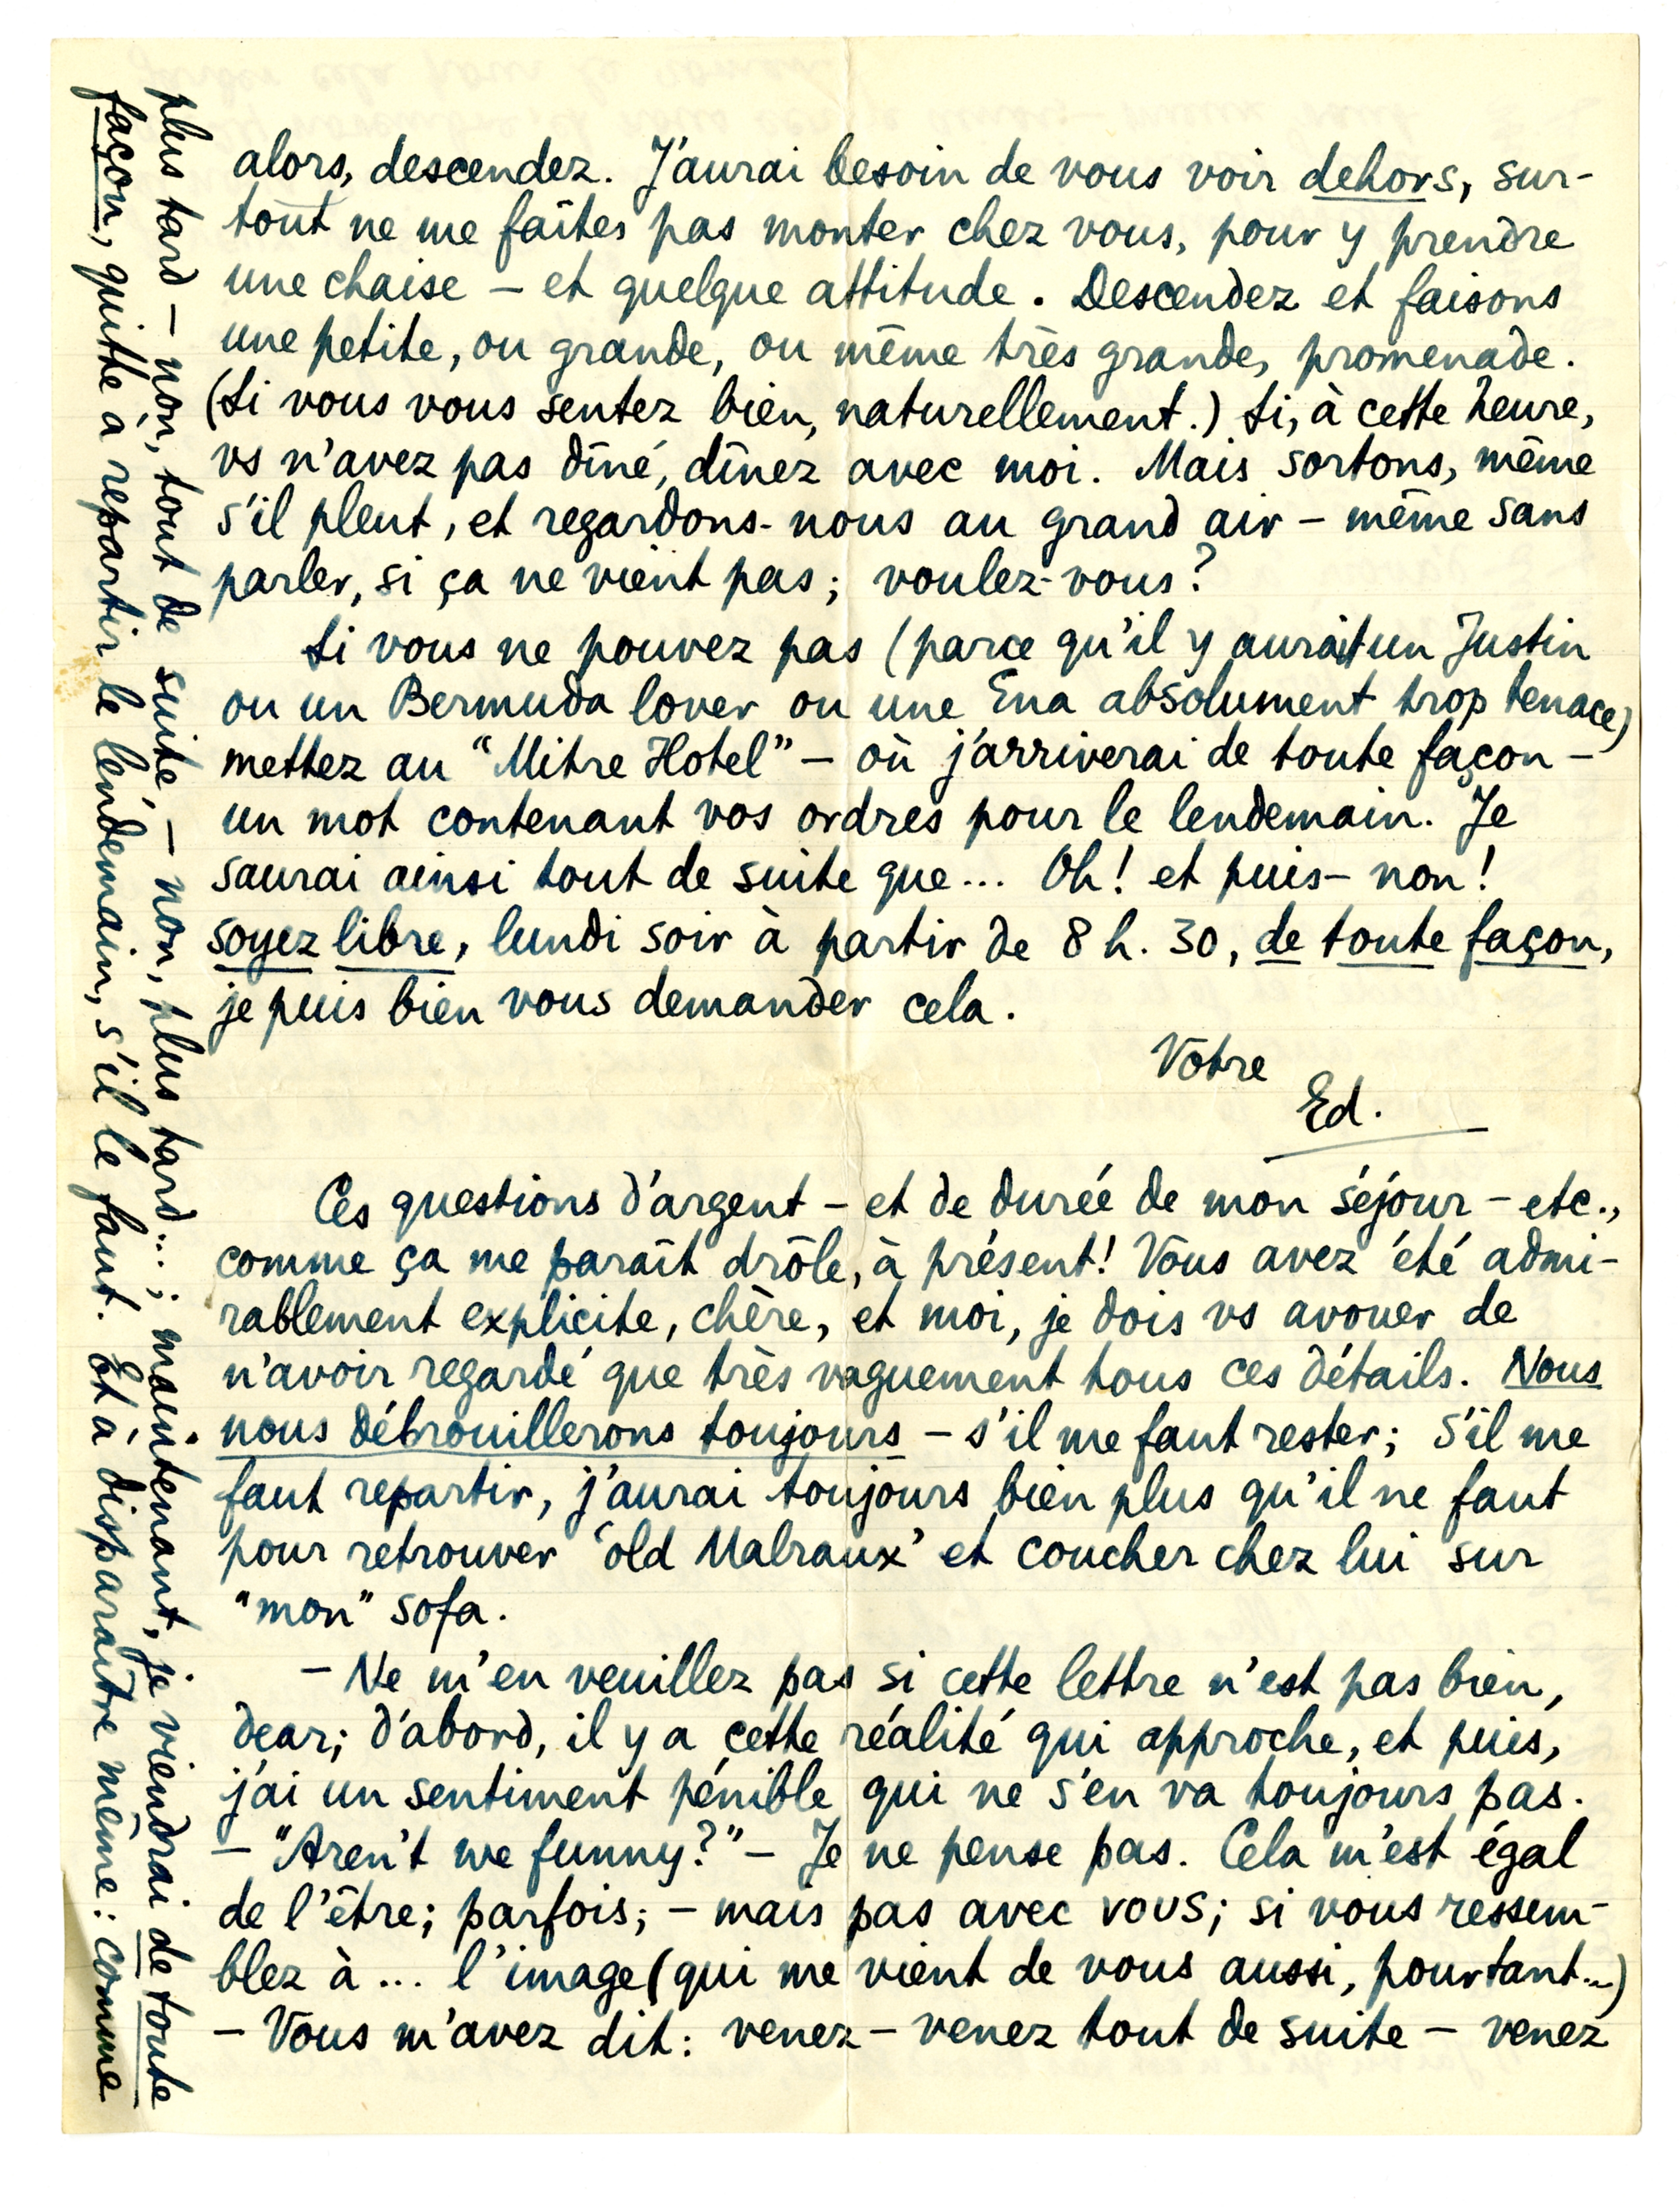 alors, descendez. J'aurai besoin de vous voir dehors, sur-
tout ne me faîtes pas monter chez vous, pour y prendre
une chaise – et quelque attitude. Descendez et faisons
une petite, ou grande, ou même très grande, promenade.
(Si vous vous sentez bien, naturellement.) Si, à cette heure,
vs n'avez pas dîné, dînez avec moi. Mais sortons, même
s'il pleut, et regardons-nous au grand air – même sans
parler, si ça ne vient pas; voulez-vous?
Si vous ne pouvez pas (parce qu'il y aurait un Justin
ou un Bermuda lover ou une Ena absolument trop tenace)
mettez au "Mitre Hotel" – où j'arriverai de toute façon –
un mot contenant vos ordres pour le lendemain. Je
saurai ainsi tout de suite que... Oh! et puis – non!
soyez libre, lundi soir à partir de 8 h. 30, de toute façon,
je puis bien vous demander cela.
Votre
Ed.
Ces questions d'argent – et de durée de mon séjour – etc.,
comme ça me paraît drôle, à présent! Vous avez été admi-
rablement explicite, chère, et moi, je dois vs avouer de
n'avoir regardé que très vaguement tous ces détails. Nous
nous débrouillerons toujours – s'il me faut rester; s'il me
faut repartir, j'aurai toujours bien plus qu'il ne faut
pour retrouver 'old Malraux' et coucher chez lui sur
"mon" sofa.
– Ne m'en veuillez pas si cette lettre n'est pas bien,
dear; d'abord, il y a cette réalité qui approche, et puis,
j'ai un sentiment pénible qui ne s'en va toujours pas.
– "Aren't we funny?" – Je ne pense pas. Cela m'est égal
de l'être; parfois; – mais pas avec vous; si vous ressem-
blez à ... l'image (qui me vient de vous aussi, pourtant...)
– Vous m'avez dit: venez – venez tout de suite – venez
plus tard – non, tout de suite, – non, plus tard...; maintenant, je viendrai de toute
façon, quitte à repartir le lendemain, s'il le faut. Et à disparaître même: comme